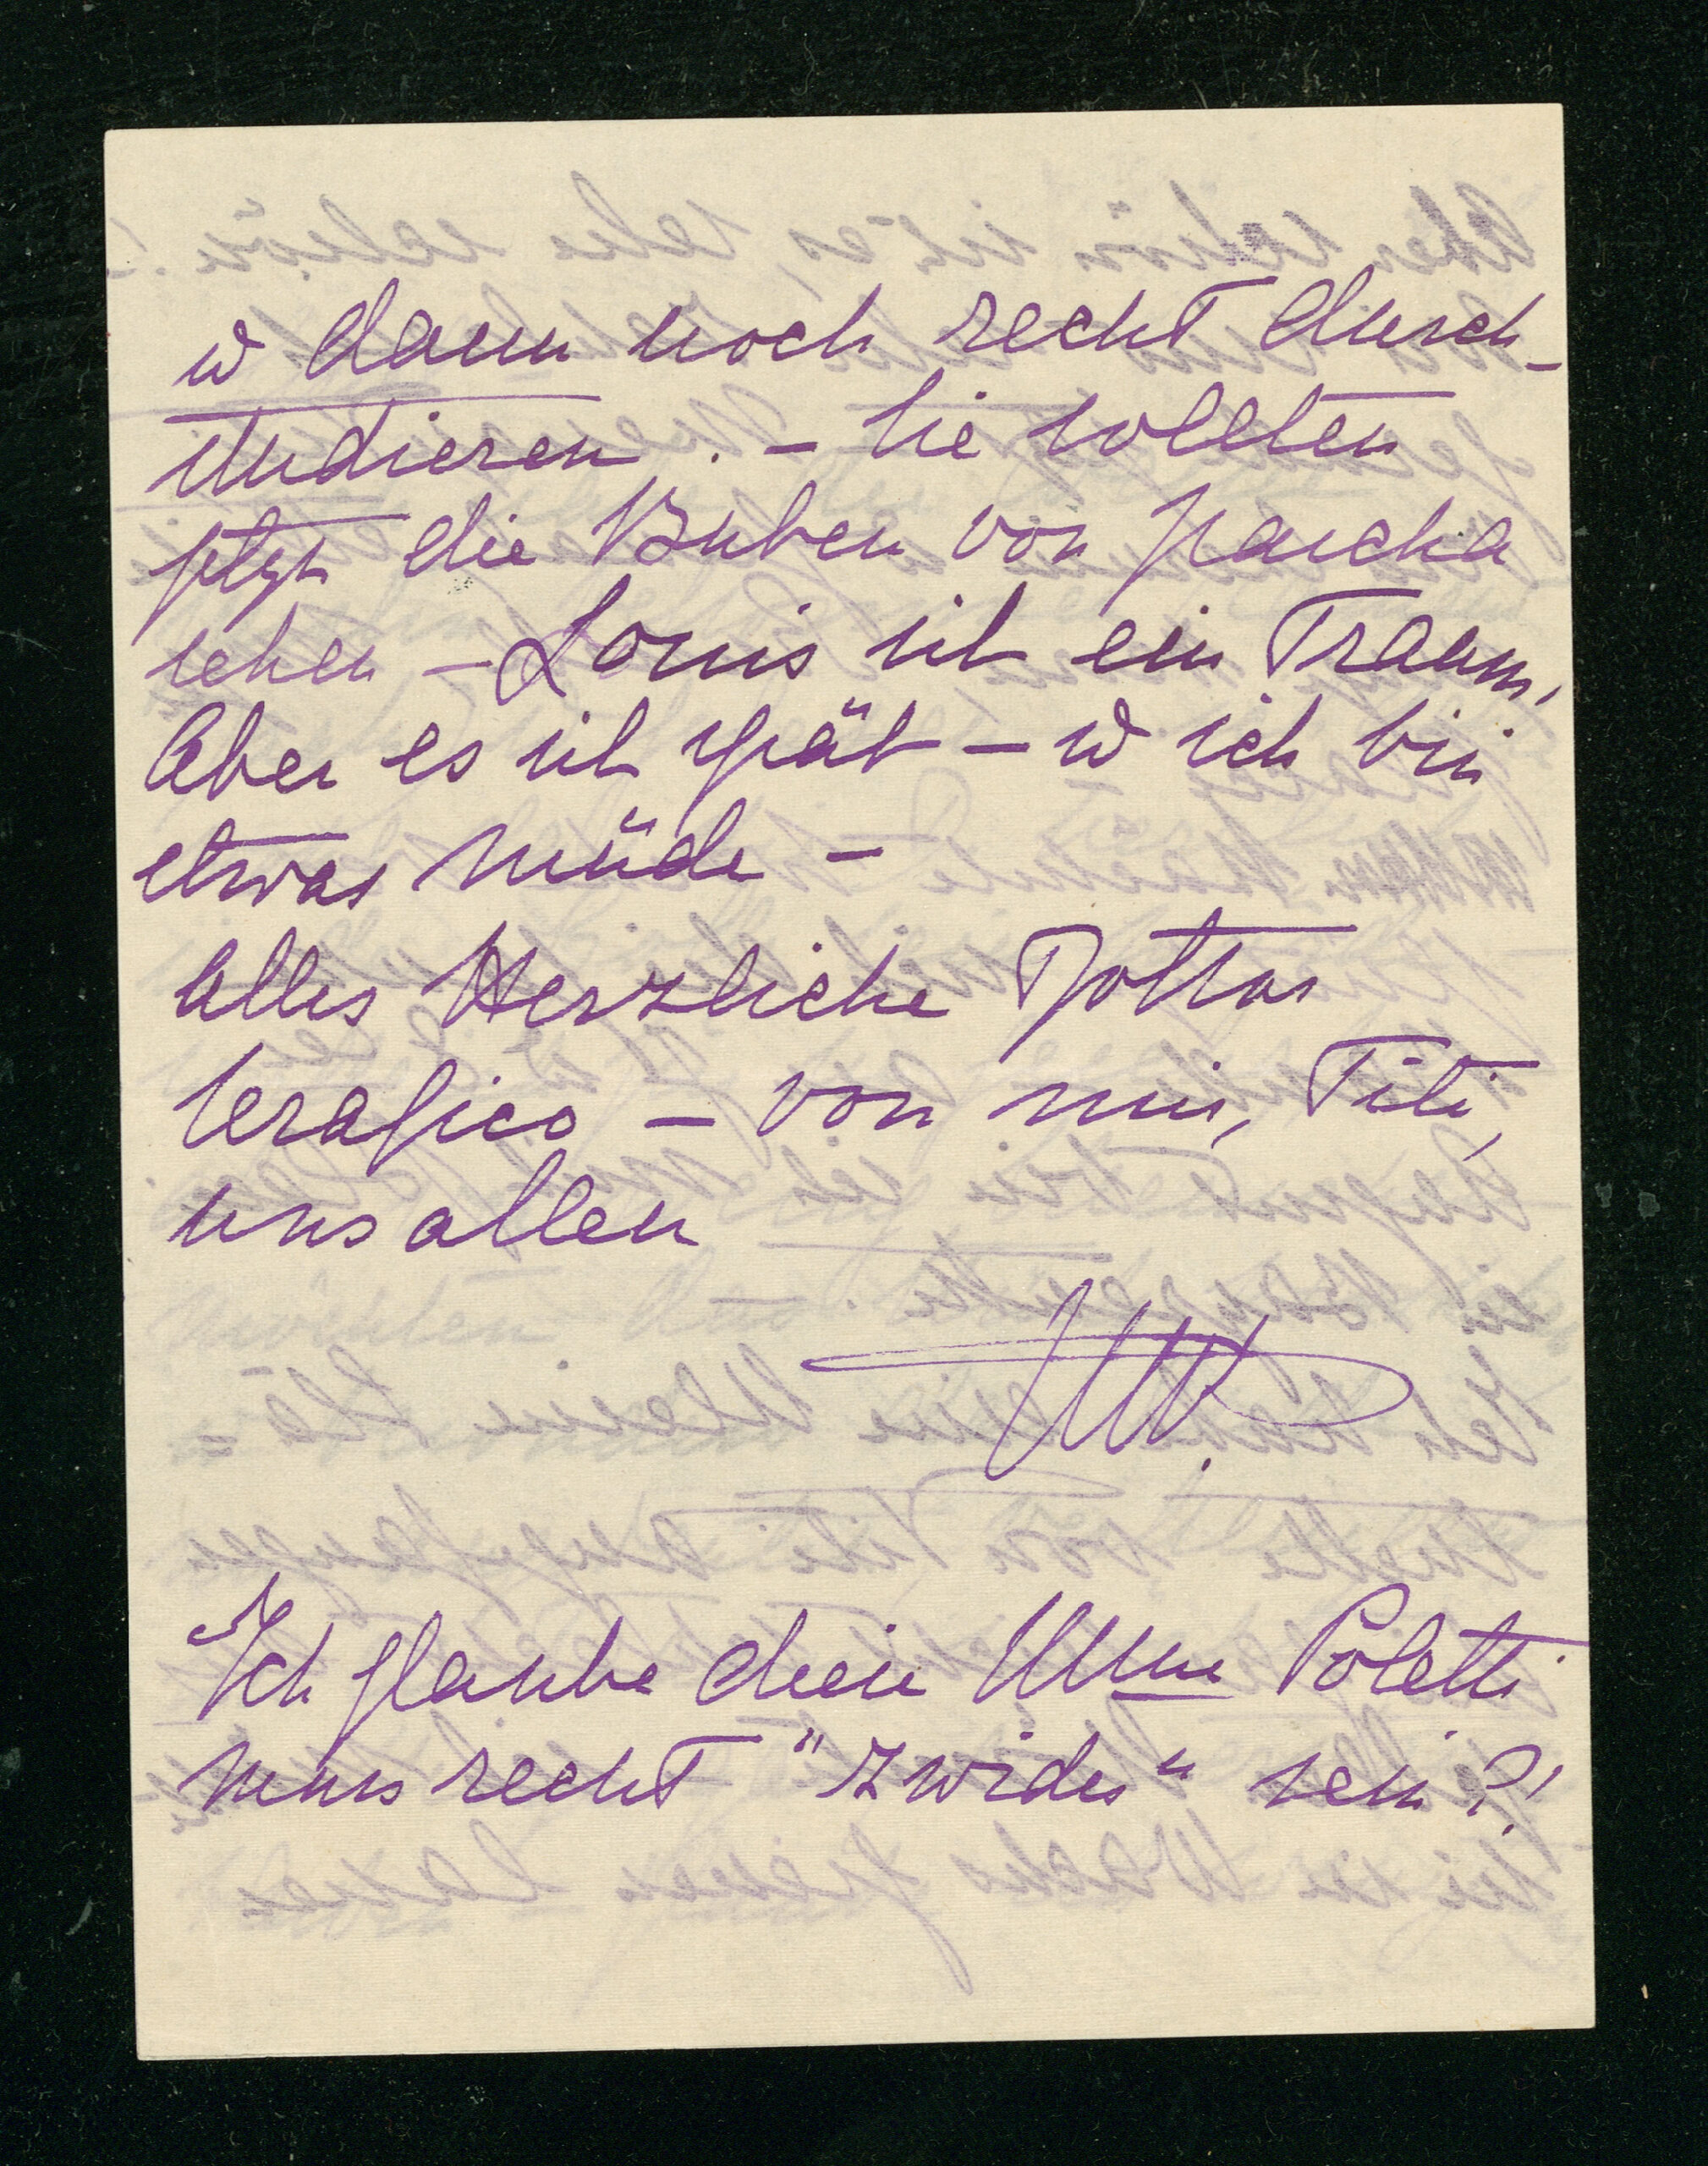 u dann noch recht durch-
studieren. – Sie sollten
jetzt die Buben von Pascha
sehen – Louis ist ein Traum,
Aber es ist spät – u ich bin
etwas müde –
Alles Herzliche Dottor
Serafico – von mir, Titi,
uns allen
MT.
Ich glaube diese Mme Poletti
muss recht "zwider" sein?!